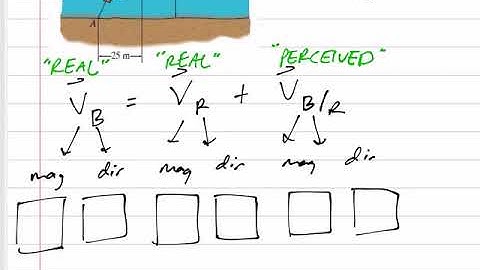 A
25 m
"REAL" "REAL" "PERCEIVED"
V B = V R + V B/R
mag dir mag dir mag dir